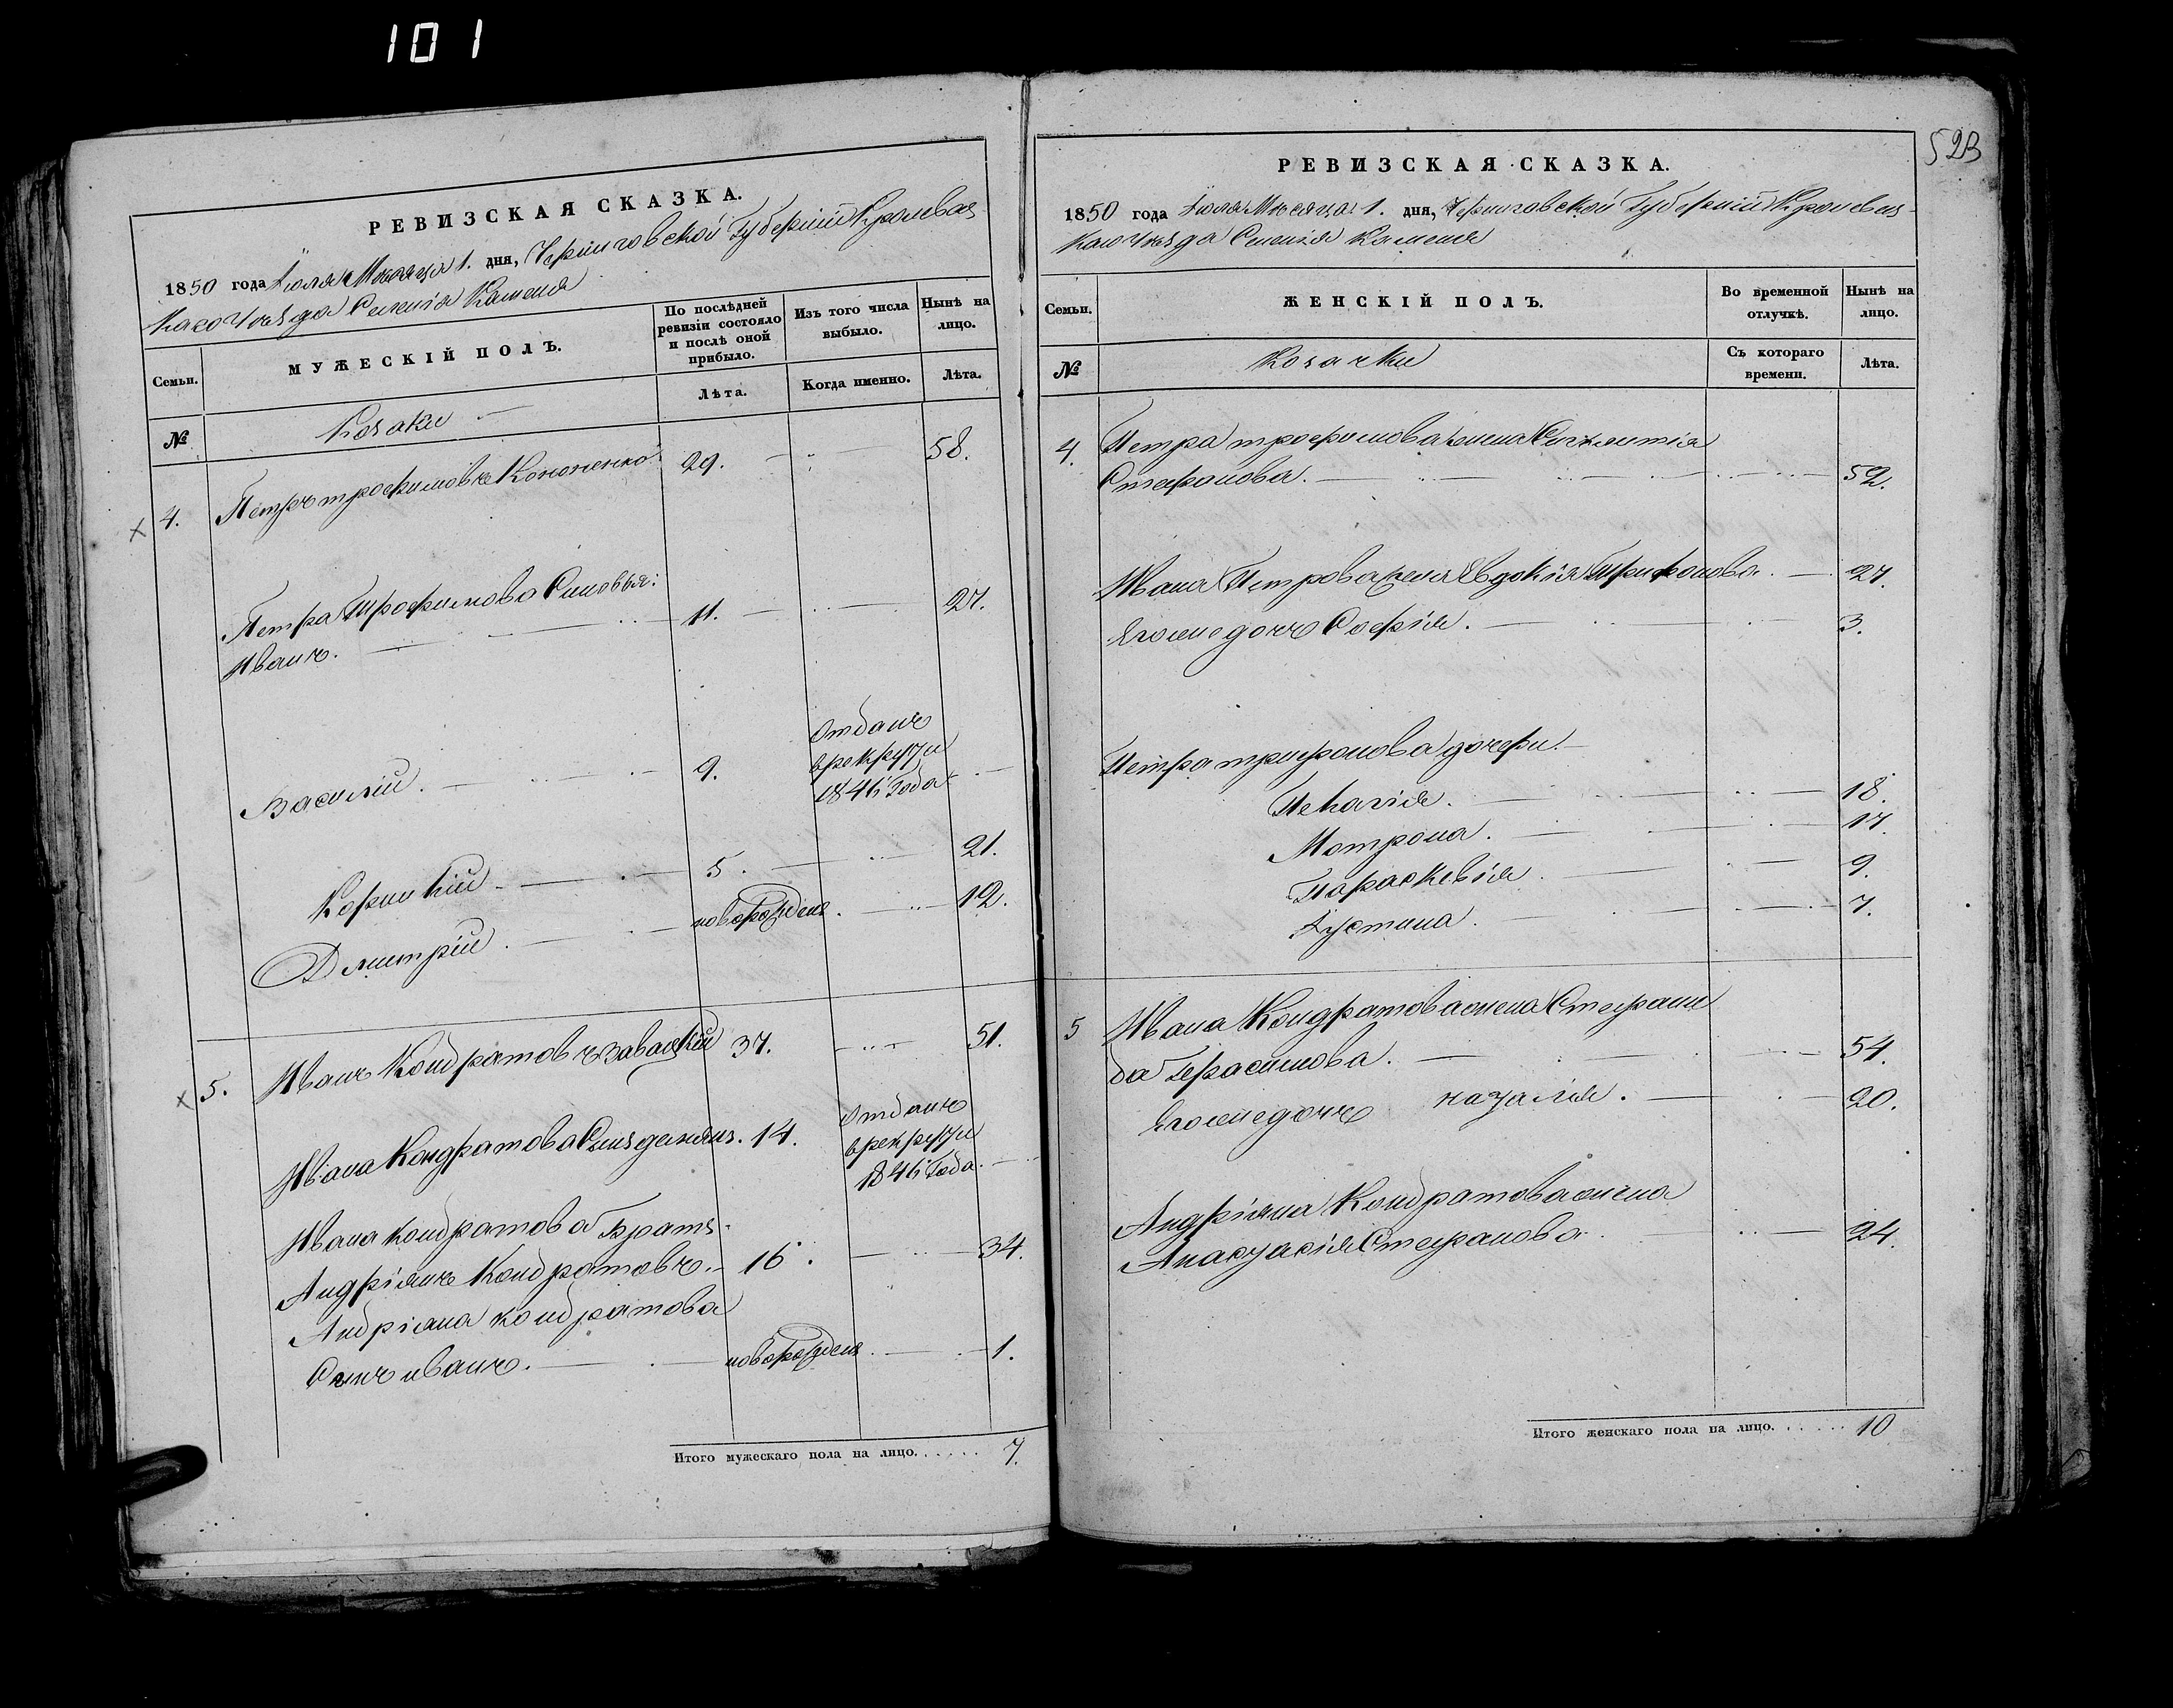 101
РЕВИЗСКАЯ СКАЗКА.
1850 года Іюля Месяца 1. дня, Черниговской Губерніи Кролевец-
каго Уезда Селенія Каменя
Семьи.
МУЖЕСКІЙ ПОЛЪ.
По послѣдней ревизіи состояло и послѣ оной прибыло.
Изъ того числа выбыло.
Нынѣ на лицо.
№
Козаки
Лѣта.
Когда именно.
Лѣта.
4. Петръ трофимовъ Кононенко 29. 58.
Петра Трофимова Сыновья:
Иванъ. 11. 27.
Василій. 9. Отданъ
врекруты
1846 Года
Корнилій 5. 21.
Дмитрій новорожден. 12.
5. Иванъ Кондратовъ 37. 51.
Ивана Кондратова Сынъ 14. Отданъ
врекруты
1846 Года.
Ивана кондратова Братъ
Андріянъ Кондратовъ. 16. 34.
Андріяна кондратова
Сынъ иванъ. новорожден 1.
Итого мужескаго пола на лицо...... 7.
523
РЕВИЗСКАЯ СКАЗКА.
1850 года Іюля Месяца 1. дня, Черниговской Губерніи Кролевец-
каго Уезда Селенія Каменя
Семьи.
ЖЕНСКІЙ ПОЛЪ.
Во временной отлучкѣ.
Нынѣ на лицо.
№
Козачки
Съ котораго времени.
Лѣта.
4. Петра трофимова жена
Стефанова. 52.
Ивана Петрова жена Евдокія Трифонова. 27.
Егожне дочь Софія. 3.
Петра трифонова дочери.
Пелагія. 18.
Мотрона. 17.
Параскевія. 9.
Іустина. 7.
5 Ивана Кондратова жена Стефани
да Герасимова. 54.
Егожне дочь наталія. 20.
Андріяна Кондратова жена
Анастасія Стефанова. 24.
Итого женскаго пола на лицо...... 10